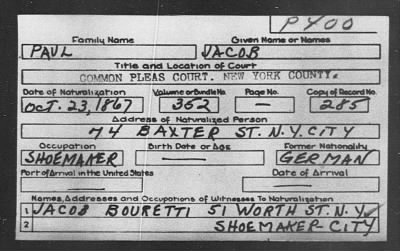 P400
Family Name Given Name or Names
PAUL JACOB
Title and Location of Court
COMMON PLEAS COURT. NEW YORK COUNTY.
Date of Naturalization Volume or Bundle No. Page No. Copy of Record No.
OCT. 23, 1867 352 — 285
Address of Naturalized Person
74 BAXTER ST. N.Y. CITY
Occupation Birth Date or Age Former Nationality
SHOEMAKER — GERMAN
Port of Arrival in the United States Date of Arrival
— —
Names, Addresses and Occupations of Witnesses To Naturalization
1 JACOB BOURETTI 51 WORTH ST. N.Y.
2 SHOEMAKER CITY